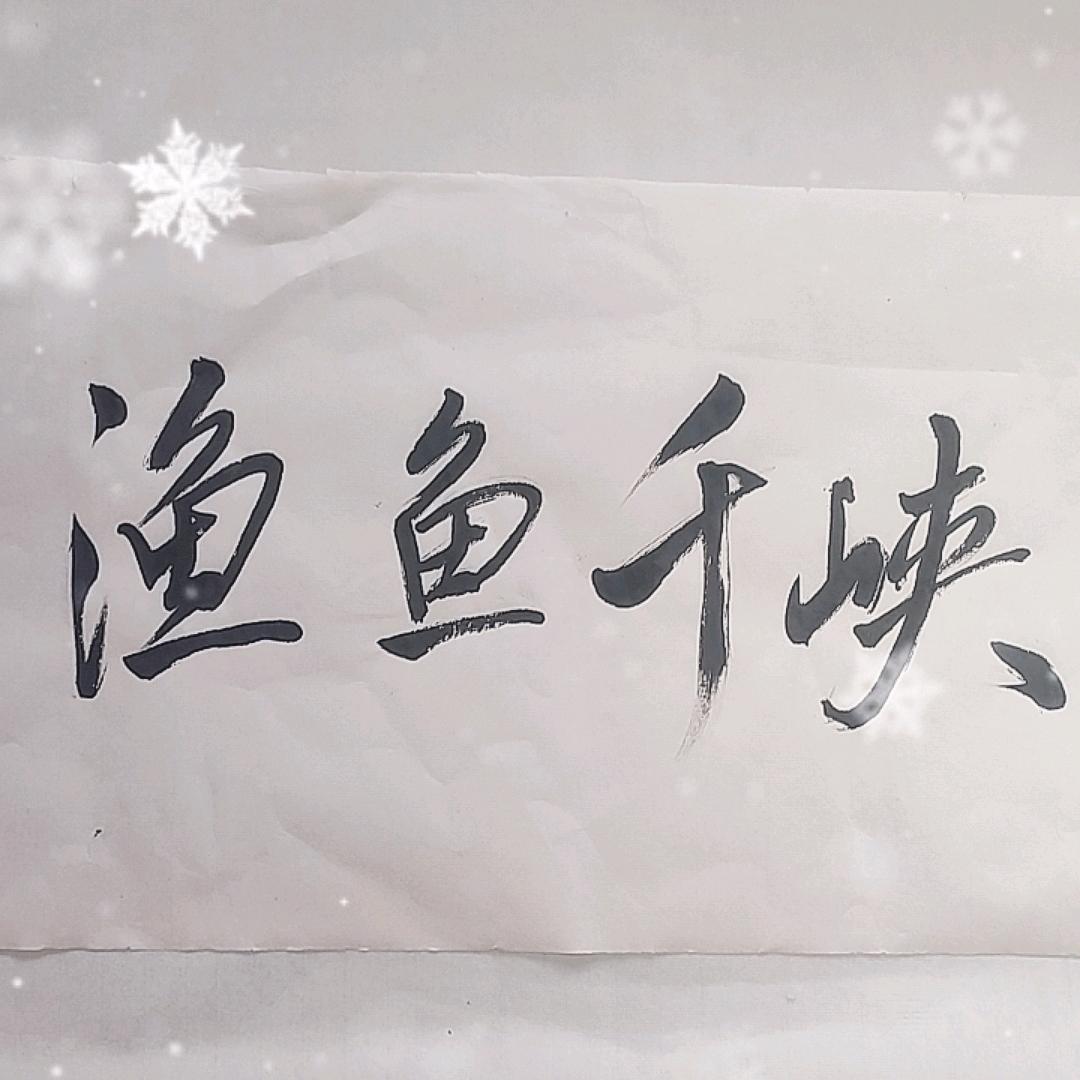 渔鱼千峡